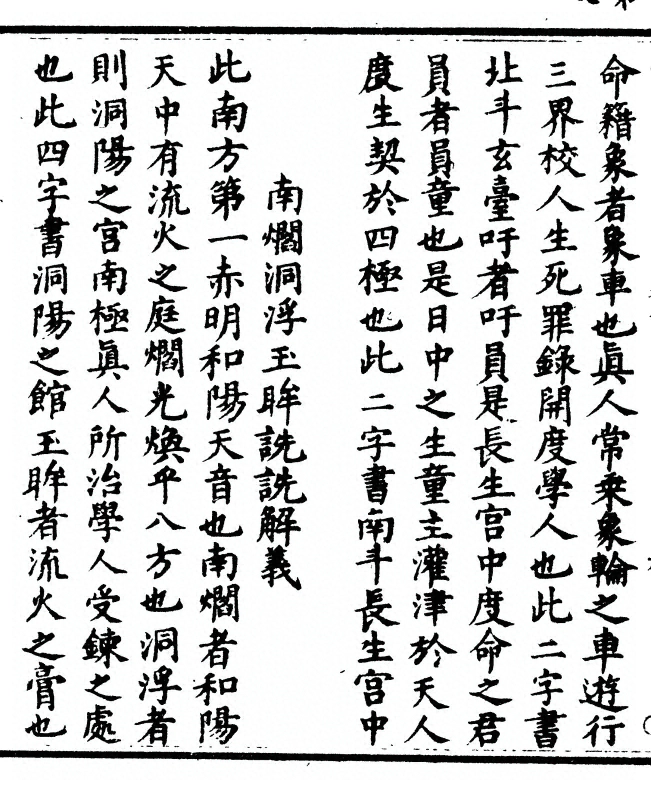 命籍象者象車也眞人常乗象輪之車遊行
三界校人生死罪錄開度學人也此二字書
北斗玄臺吁者吁員是長生宫中度命之君
員者員童也是日中之生童主灌津於天人
度生契於四極也此二字書南斗長生宫中
南爓洞浮玉眸詵詵解義
此南方第一赤明和陽天音也南爓者和陽
天中有流火之庭爓光煥乎八方也洞浮者
則洞陽之宫南極眞人所治學人受鍊之處
也此四字書洞陽之館玉眸者流火之膏也